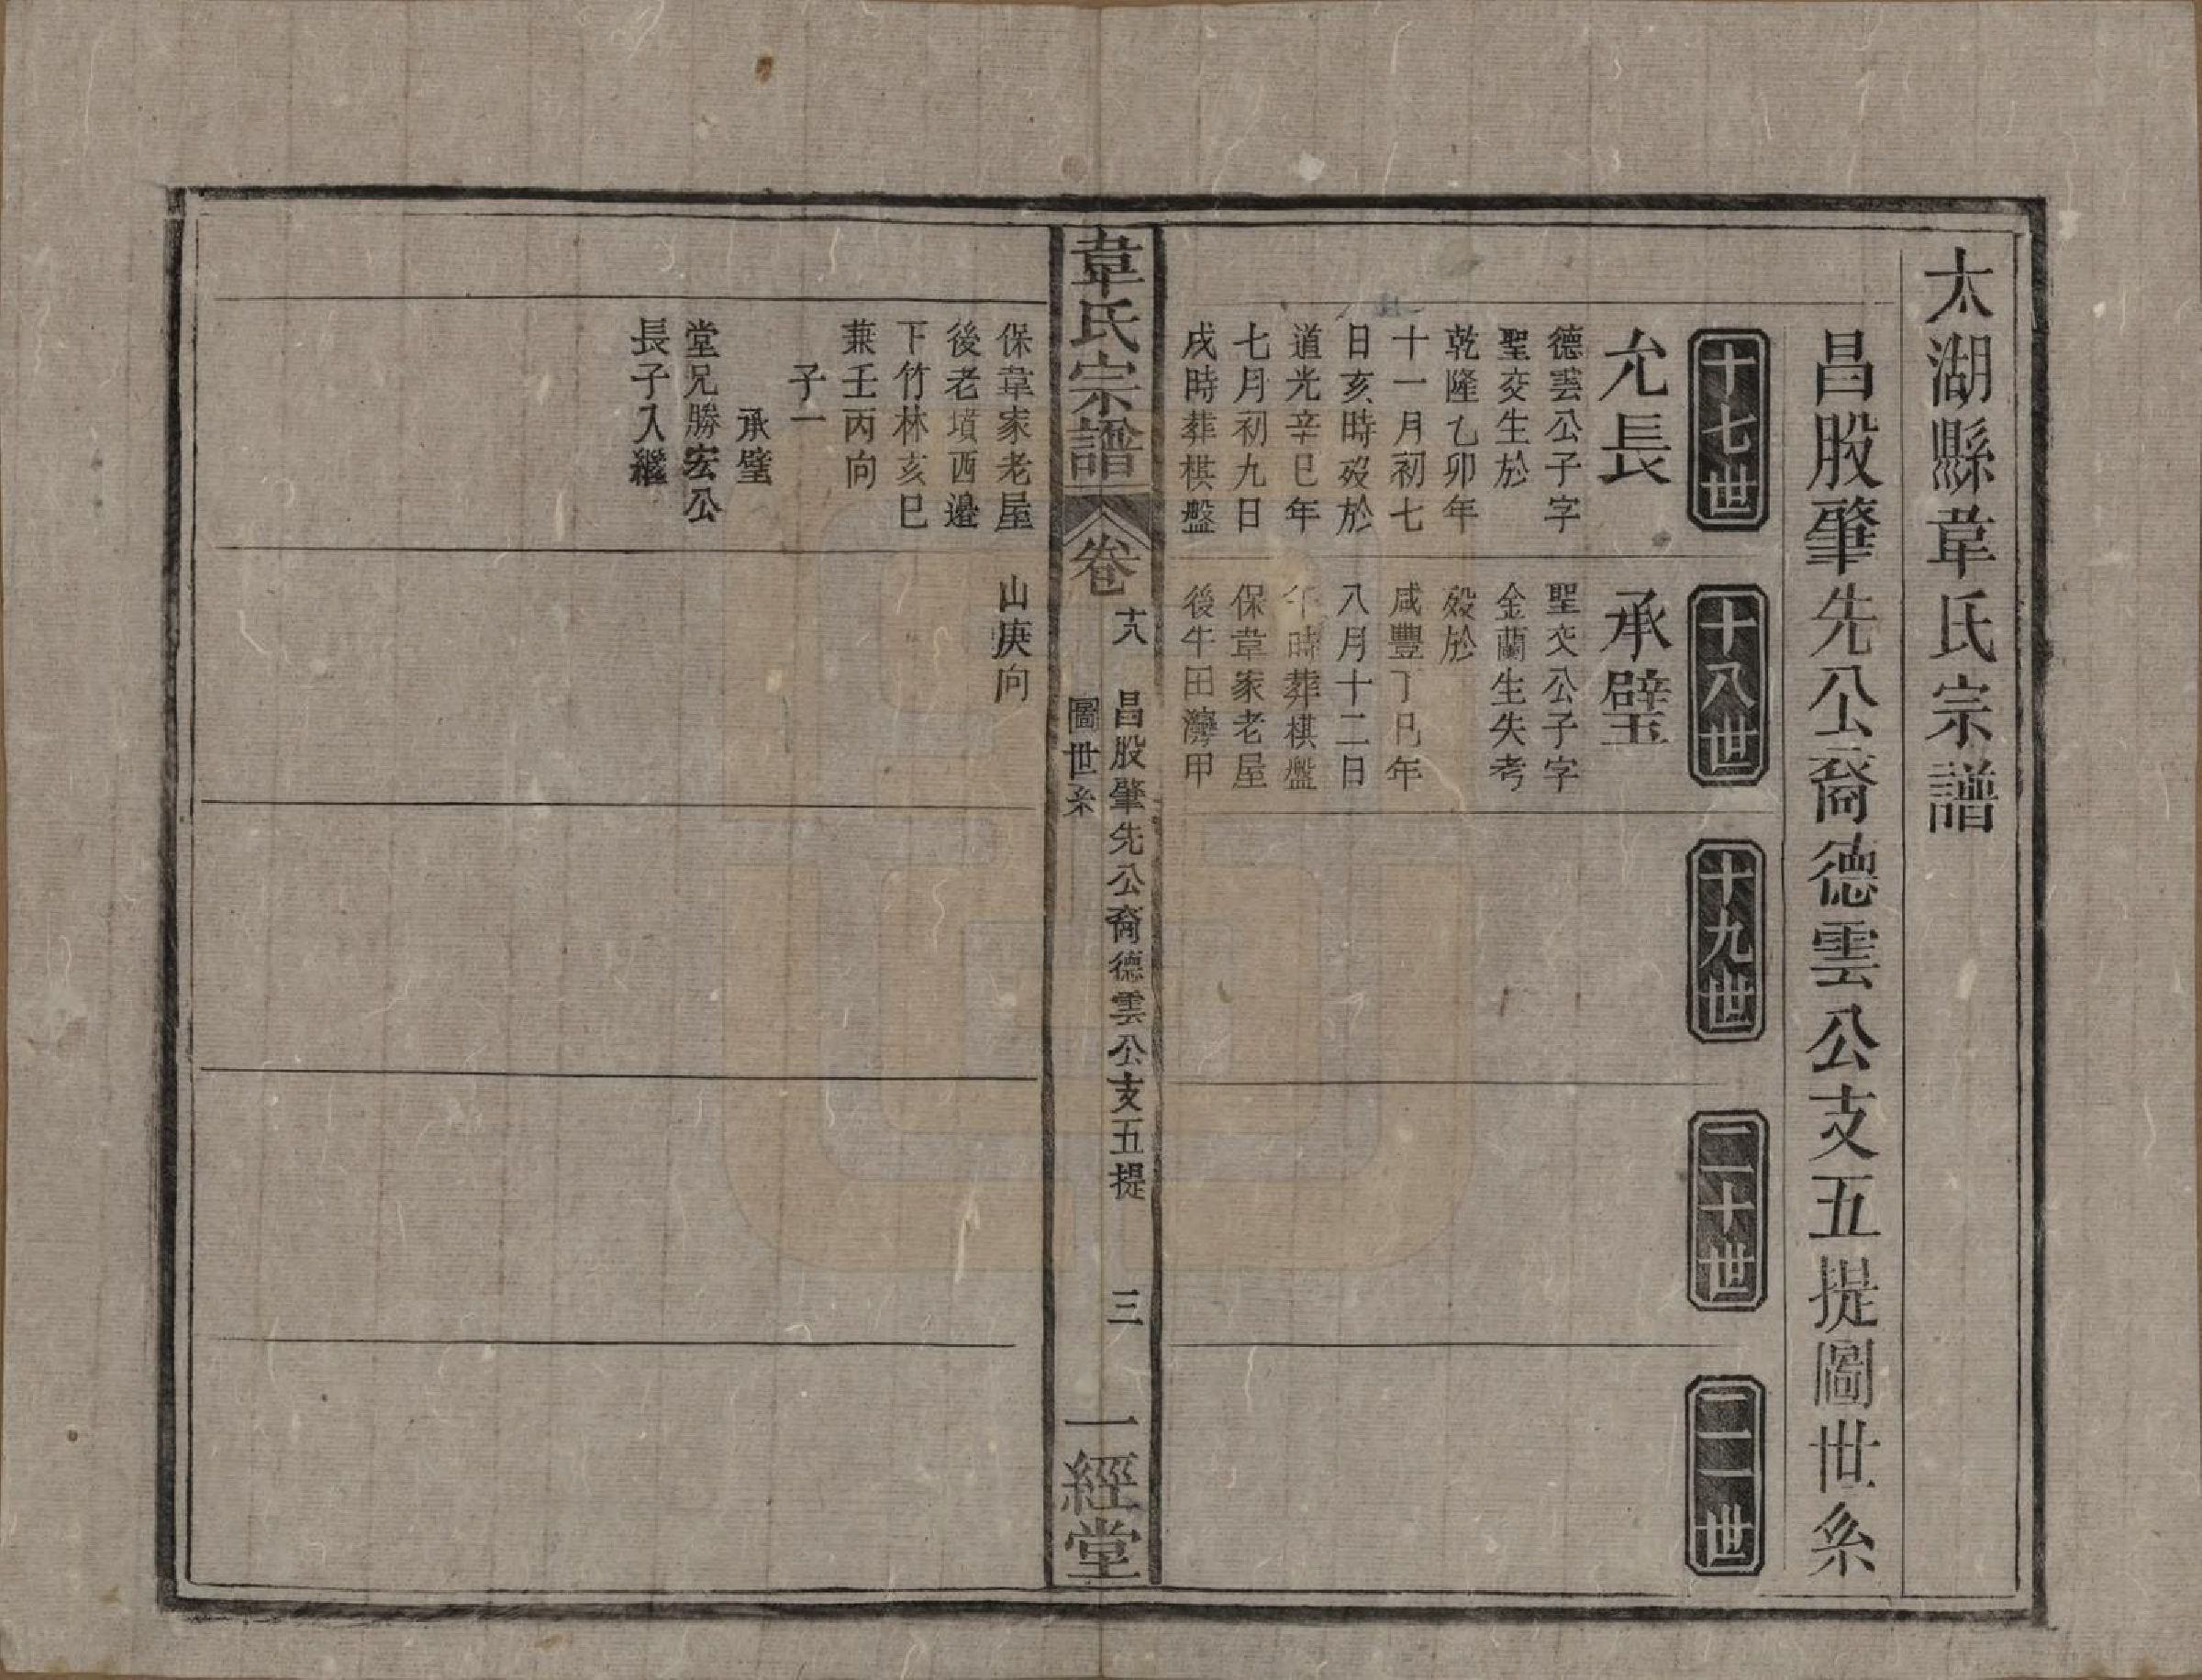 太湖縣韋氏宗譜
昌股肇先公裔德雲公支五提圖世系
十七世
允長
德雲公子字
聖交生於
乾隆乙卯年
十一月初七
日亥時歿於
道光辛巳年
七月初九日
戌時葬棋盤
十八世
承璧
聖交公子字
金蘭生失考
歿於
咸豐丁巳年
八月十二日
午時葬棋盤
保韋家老屋
後牛田灣甲
十九世
二十世
二一世
韋氏宗譜
卷
十八
昌股肇先公裔德雲公支五提
圖世系
三
一經堂
保韋家老屋
後老墳西邊
下竹林亥巳
兼壬丙向
子一
承璧
堂兄勝宏公
長子入繼
山庚向